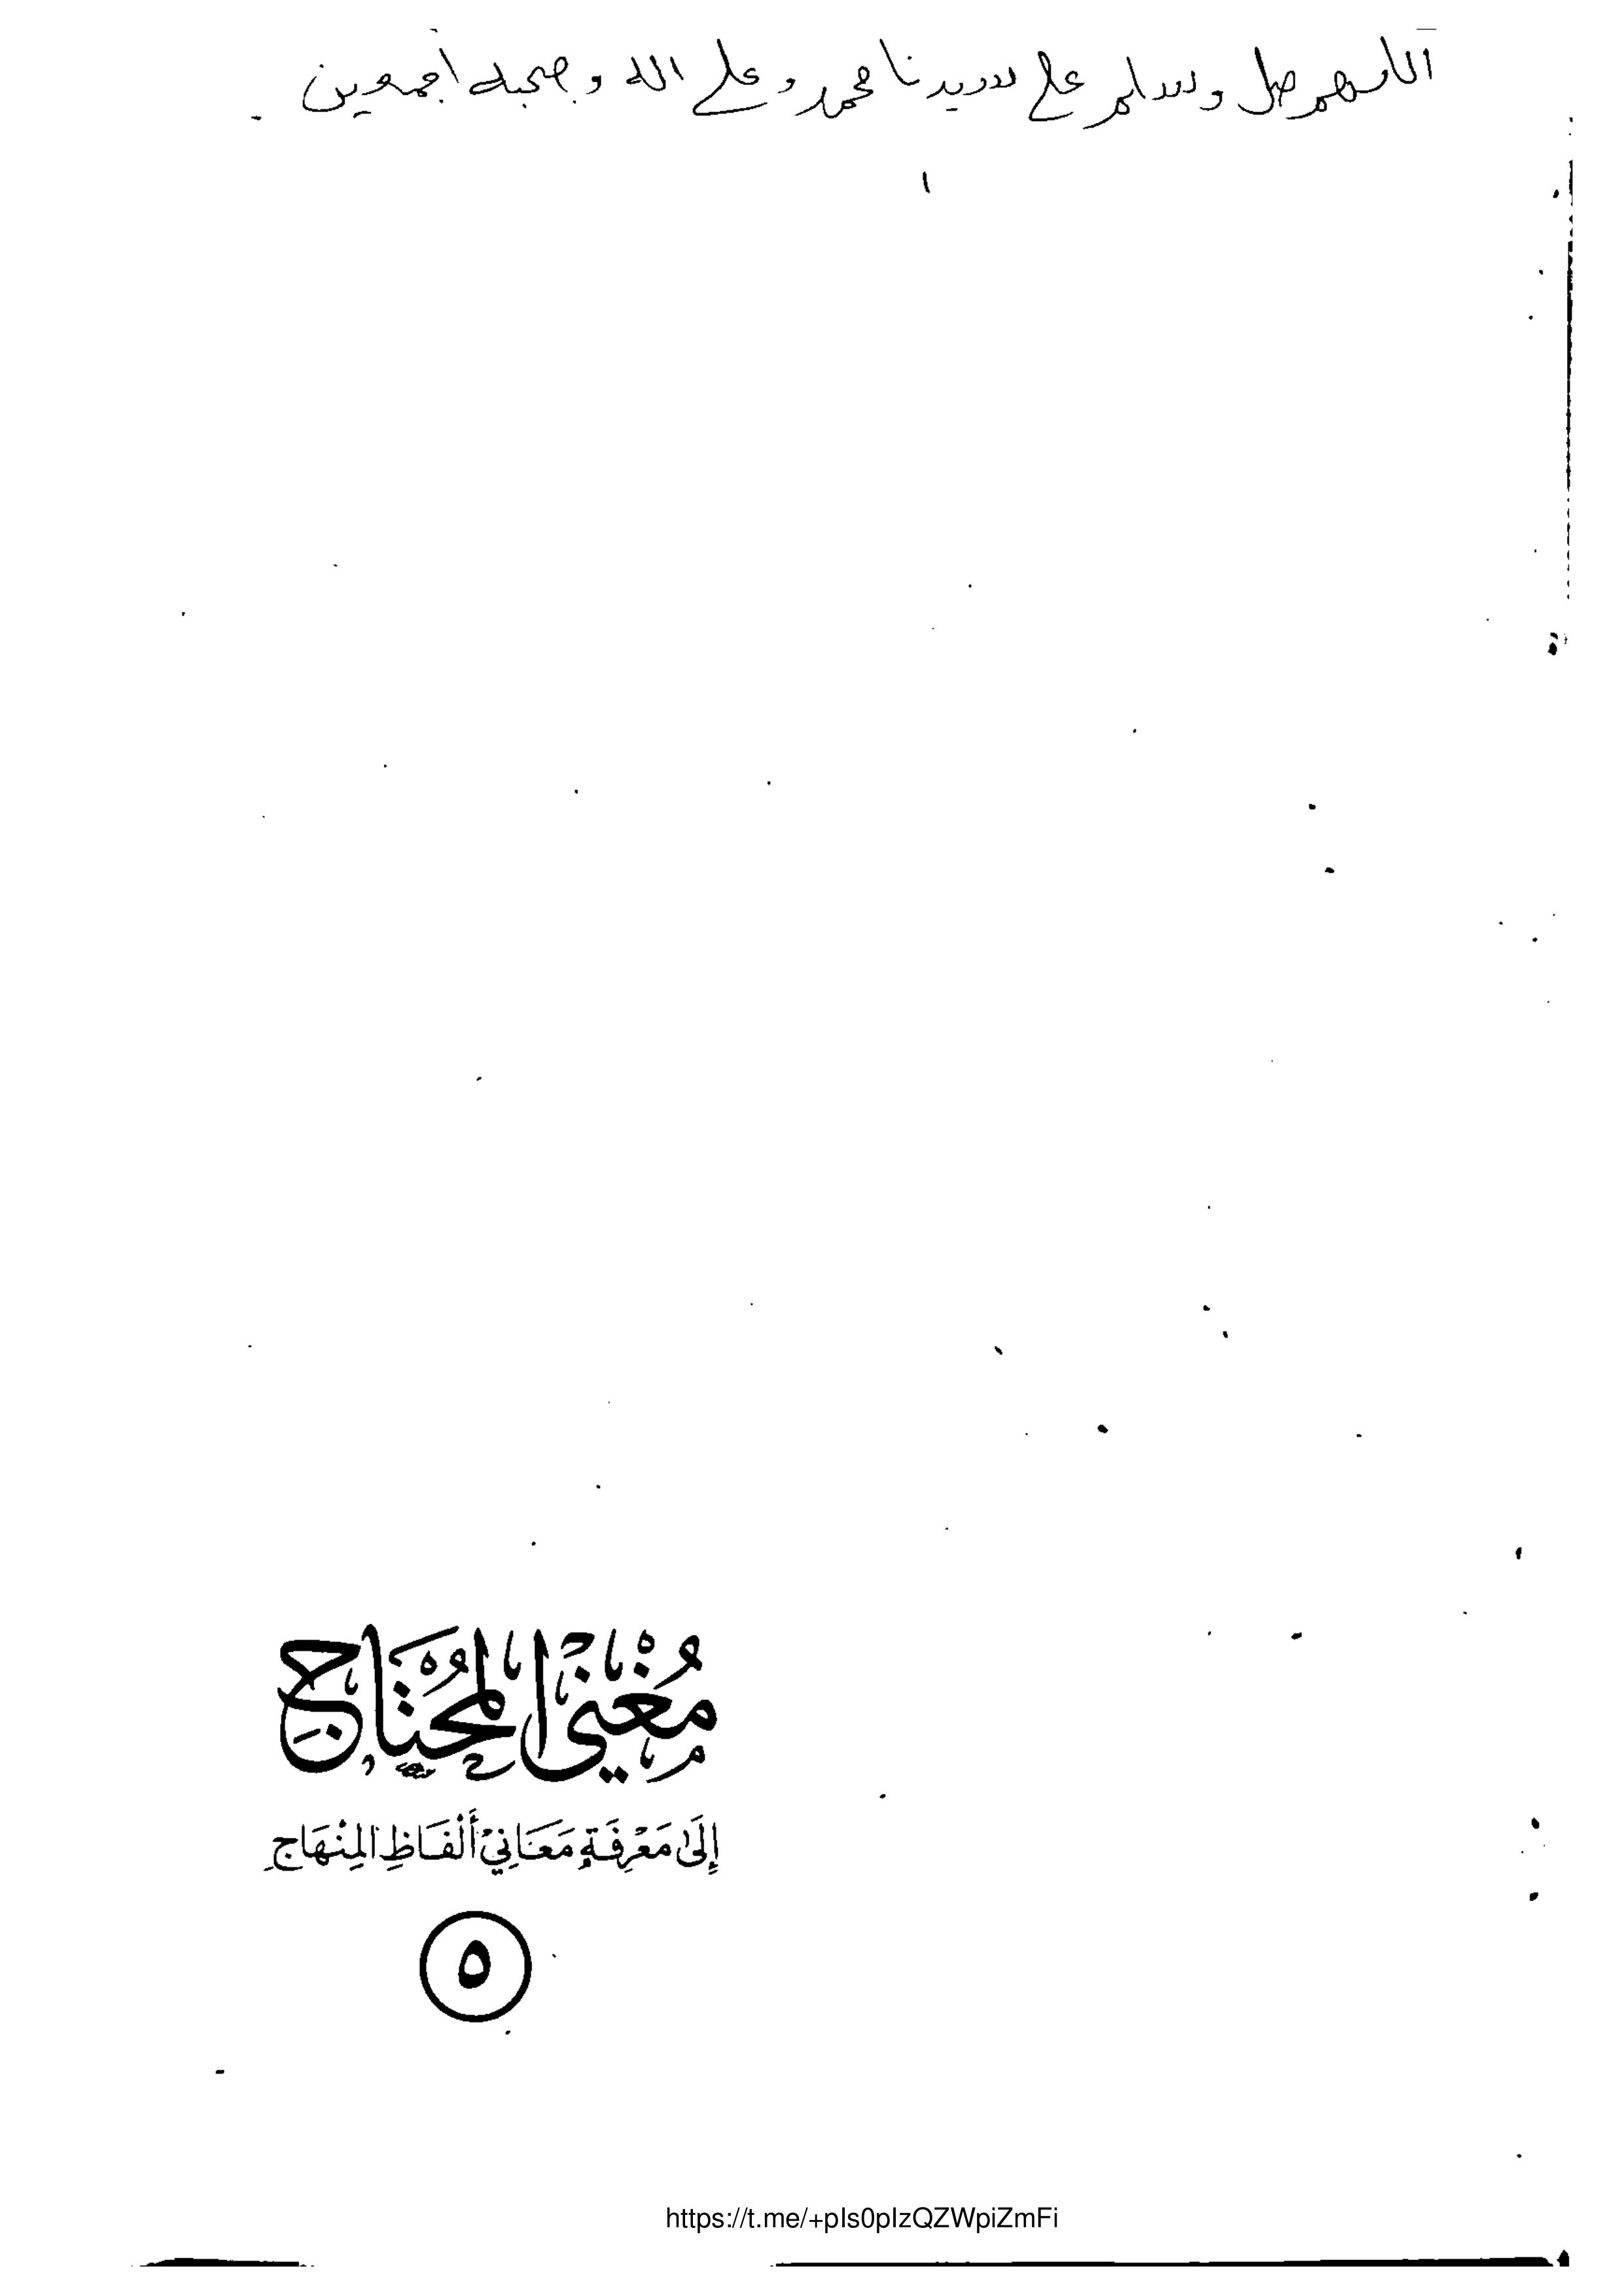 اللهم صل وسلم على سيدنا محمد وعلى اله وصحبه اجمعين
مُغْنِي المُحْتَاجِ
إِلَىٰ مَعْرِفَةِ مَعَانِيْ أَلْفَاظِ المِنْهَاجِ
٥
https://t.me/+pIs0pIzQZWpiZmFi